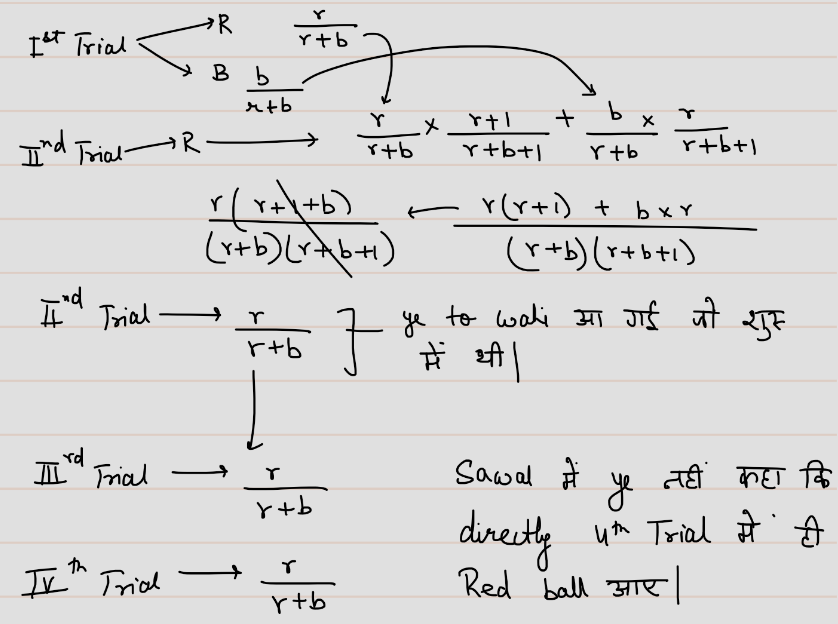 Iˢᵗ Trial → R r/(r+b)
→ B b/(r+b)
IIⁿᵈ Trial → R → r/(r+b) × (r+1)/(r+b+1) + b/(r+b) × r/(r+b+1)
r(r+1+b)/((r+b)(r+b+1)) ← (r(r+1) + b×r)/((r+b)(r+b+1))
IIⁿᵈ Trial → r/(r+b) } ye to wahi आ गई जो शुरू
में थी|
IIIʳᵈ Trial → r/(r+b)
Sawal में ye नहीं कहा कि
directly 4ᵗʰ Trial में ही
IVᵗʰ Trial → r/(r+b)
Red ball आए|